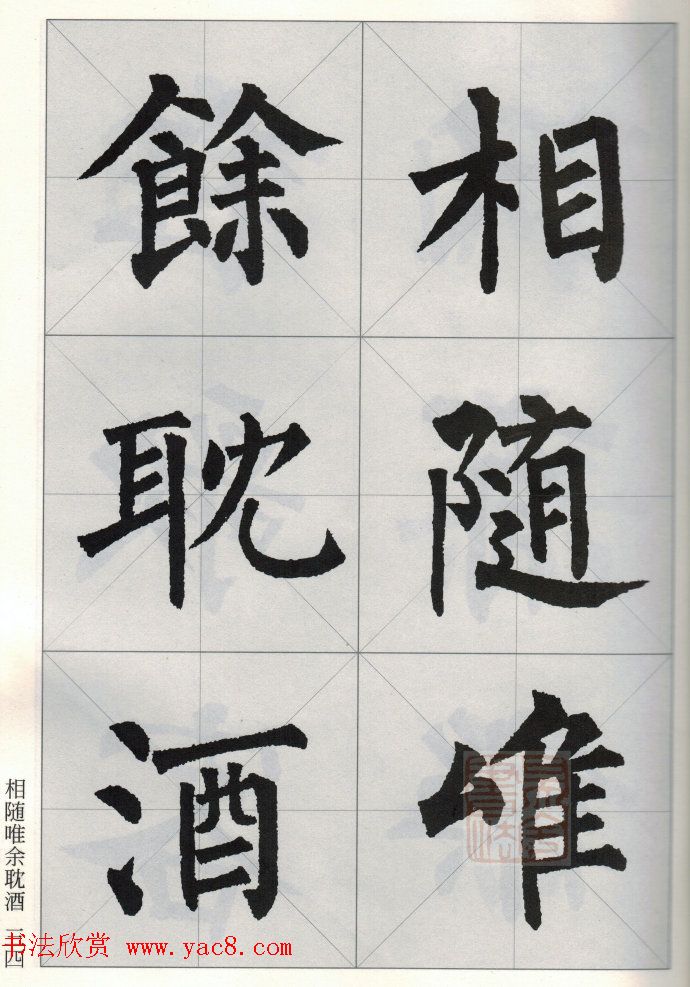 相随唯
餘耽酒
相随唯余耽酒 三四
书法欣赏 www.yac8.com